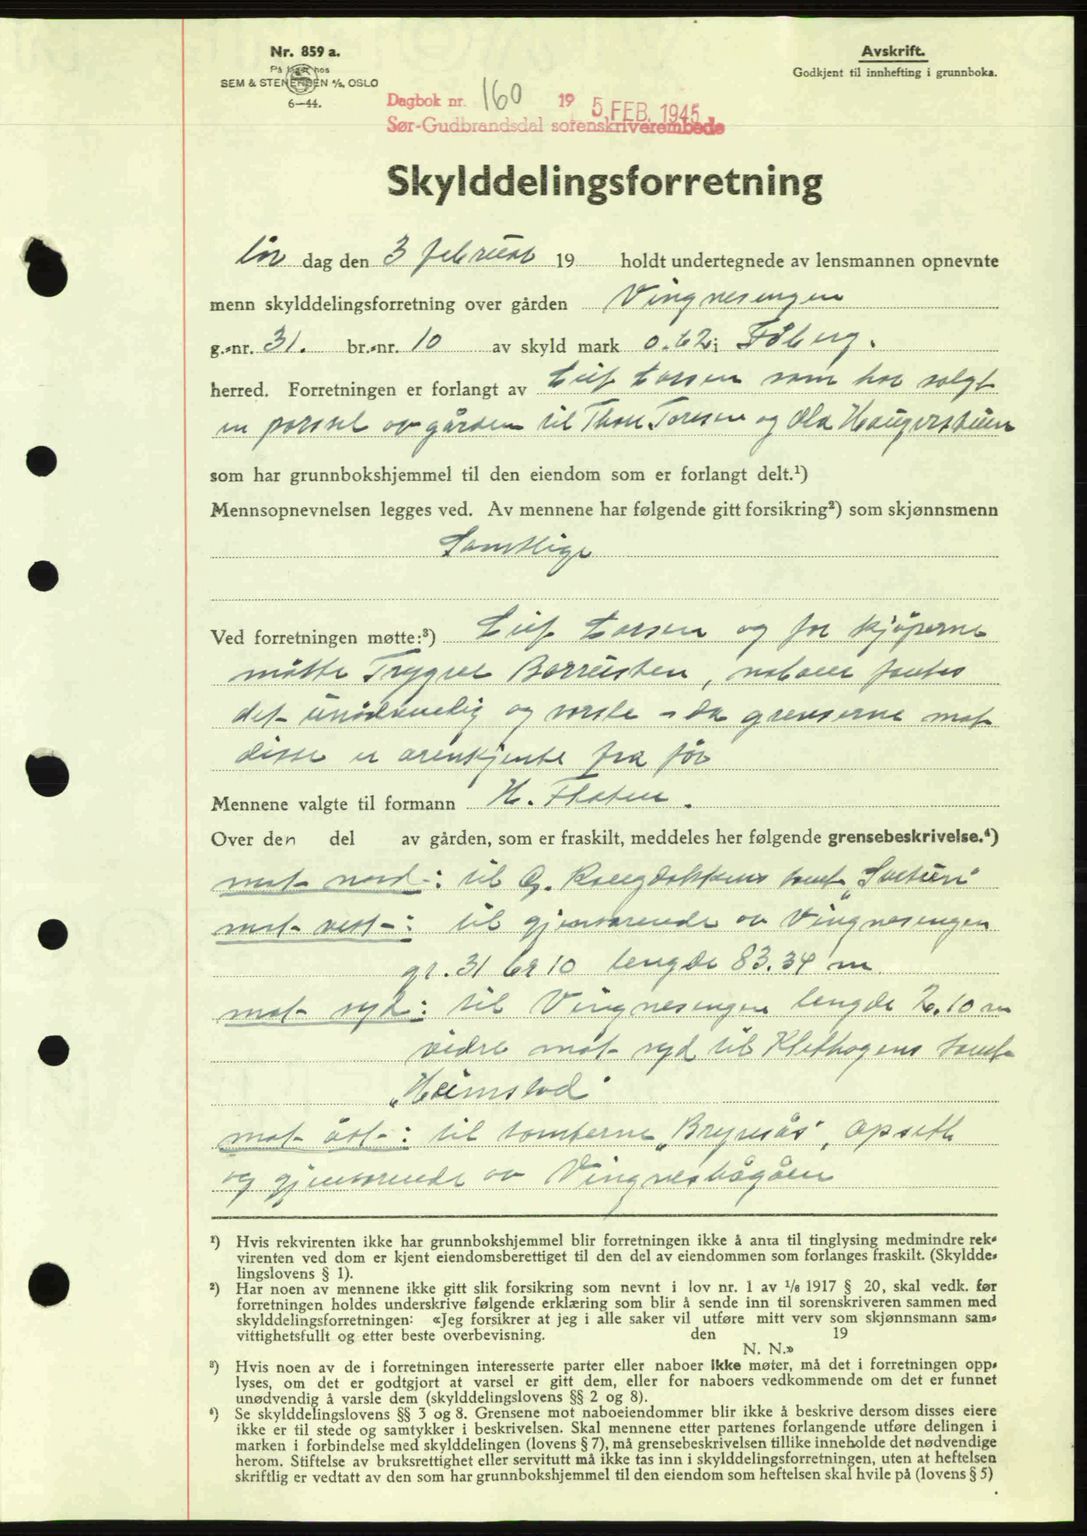 Nr. 859 a.
På lager hos
SEM & STENERSEN A/S, OSLO
6—44.
Avskrift.
Godkjent til innhefting i grunnboka.
Dagbok nr. 160 19 5. FEB. 1945
Sør-Gudbrandsdal sorenskriverembede
Skylddelingsforretning
lør dag den 3 februar 19 holdt undertegnede av lensmannen opnevnte
menn skylddelingsforretning over gården Vingnesengen
g.-nr. 31. br.-nr. 10 av skyld mark 0.62 i Fåberg.
herred. Forretningen er forlangt av Leif Larsen som har solgt
en parsel av gården til Thore Toresen og Ola Haugerstuen
som har grunnbokshjemmel til den eiendom som er forlangt delt.¹)
Mennsopnevnelsen legges ved. Av mennene har følgende gitt forsikring²) som skjønnsmenn
Samtlige
Ved forretningen møtte:³) Leif Larsen og for kjøperne
møtte Trygve Borreisten, naboer fantes
det unødvendig og varsle - da grenserne mot
disse er opmerkjente fra før
Mennene valgte til formann H. Flaten.
Over den del av gården, som er fraskilt, meddeles her følgende grensebeskrivelse.⁴)
mot nord: til G. tomt „Soltun"
mot vest: til gjenværende av Vingnesengen
gr. 31 br 10 lengde 83.34 m
mot syd: til Vingnesengen lengde 2.10 m
videre mot syd til Klethagens tomt
„Heimstad"
mot øst: til tomterne „Breyesås", Opseth
og gjenværende av Vingneshågåen
¹) Hvis rekvirenten ikke har grunnbokshjemmel blir forretningen ikke å anta til tinglysing medmindre rek-
virenten ved dom er kjent eiendomsberettiget til den del av eiendommen som forlanges fraskilt. (Skyldde-
lingslovens § 1).
²) Har noen av mennene ikke gitt slik forsikring som nevnt i lov nr. 1 av 1/6 1917 § 20, skal vedk. før
forretningen holdes underskrive følgende erklæring som blir å sende inn til sorenskriveren sammen med
skylddelingsforretningen: «Jeg forsikrer at jeg i alle saker vil utføre mitt verv som skjønnsmann sam-
vittighetsfullt og etter beste overbevisning. den 19
N. N.»
³) Hvis noen av de i forretningen interesserte parter eller naboer ikke møter, må det i forretningen opp-
lyses, om det er godtgjort at varsel er gitt dem, eller for naboers vedkommende om det er funnet
unødvendig å varsle dem (skylddelingslovens §§ 2 og 8).
⁴) Se skylddelingslovens §§ 3 og 8. Grensene mot naboeiendommer blir ikke å beskrive dersom disses eiere
ikke er til stede og samtykker i beskrivelsen. Skal mennene etter partenes forlangende utføre delingen i
marken i forbindelse med skylddelingen (lovens § 7), må grensebeskrivelsen tillike inneholde det nødvendige
herom. Stiftelse av bruksrettighet eller servitutt må ikke tas inn i skylddelingsforretningen, uten at heftelsen
skriftlig er vedtatt av den som har grunnbokshjemmel til den eiendom som heftelsen skal hvile på (lovens § 5)